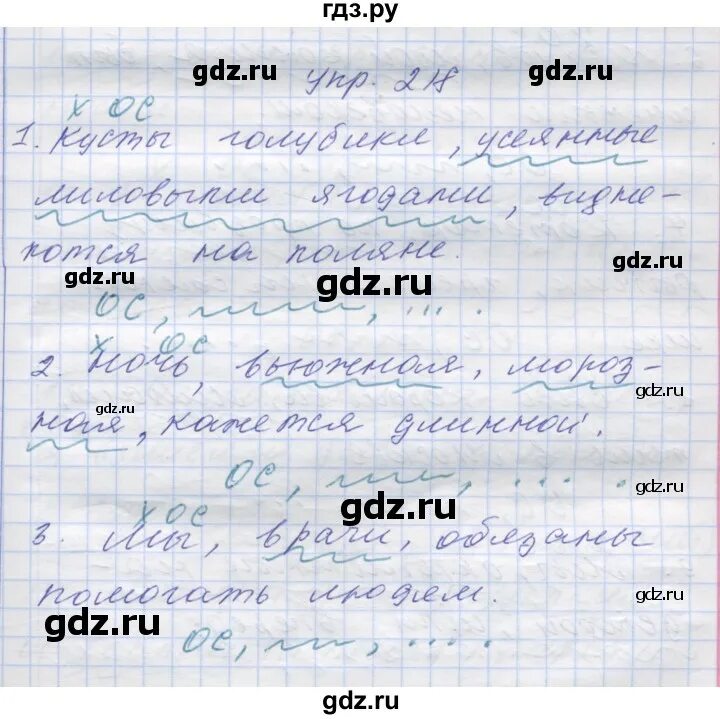 гдз.ру
gdz.ru упр. 218 gdz.ru
х ОС
1. Кусты голубики, усеянные
gdz.ru gdz.ru
лиловыми ягодами, видне-
ются на поляне. gdz.ru
gdz.ru gdz.ru
ОС, , ... .
х ОС
2. Ночь, вьюжная, мороз-
gdz.ru gdz.ru
ная, кажется длинной.
ОС, , ... .
gdz.ru
х ОС gdz.ru
3. Мы, врачи, обязаны
помогать людям. gdz.ru
gdz.ru gdz.ru
ОС, , ... .
gdz.ru